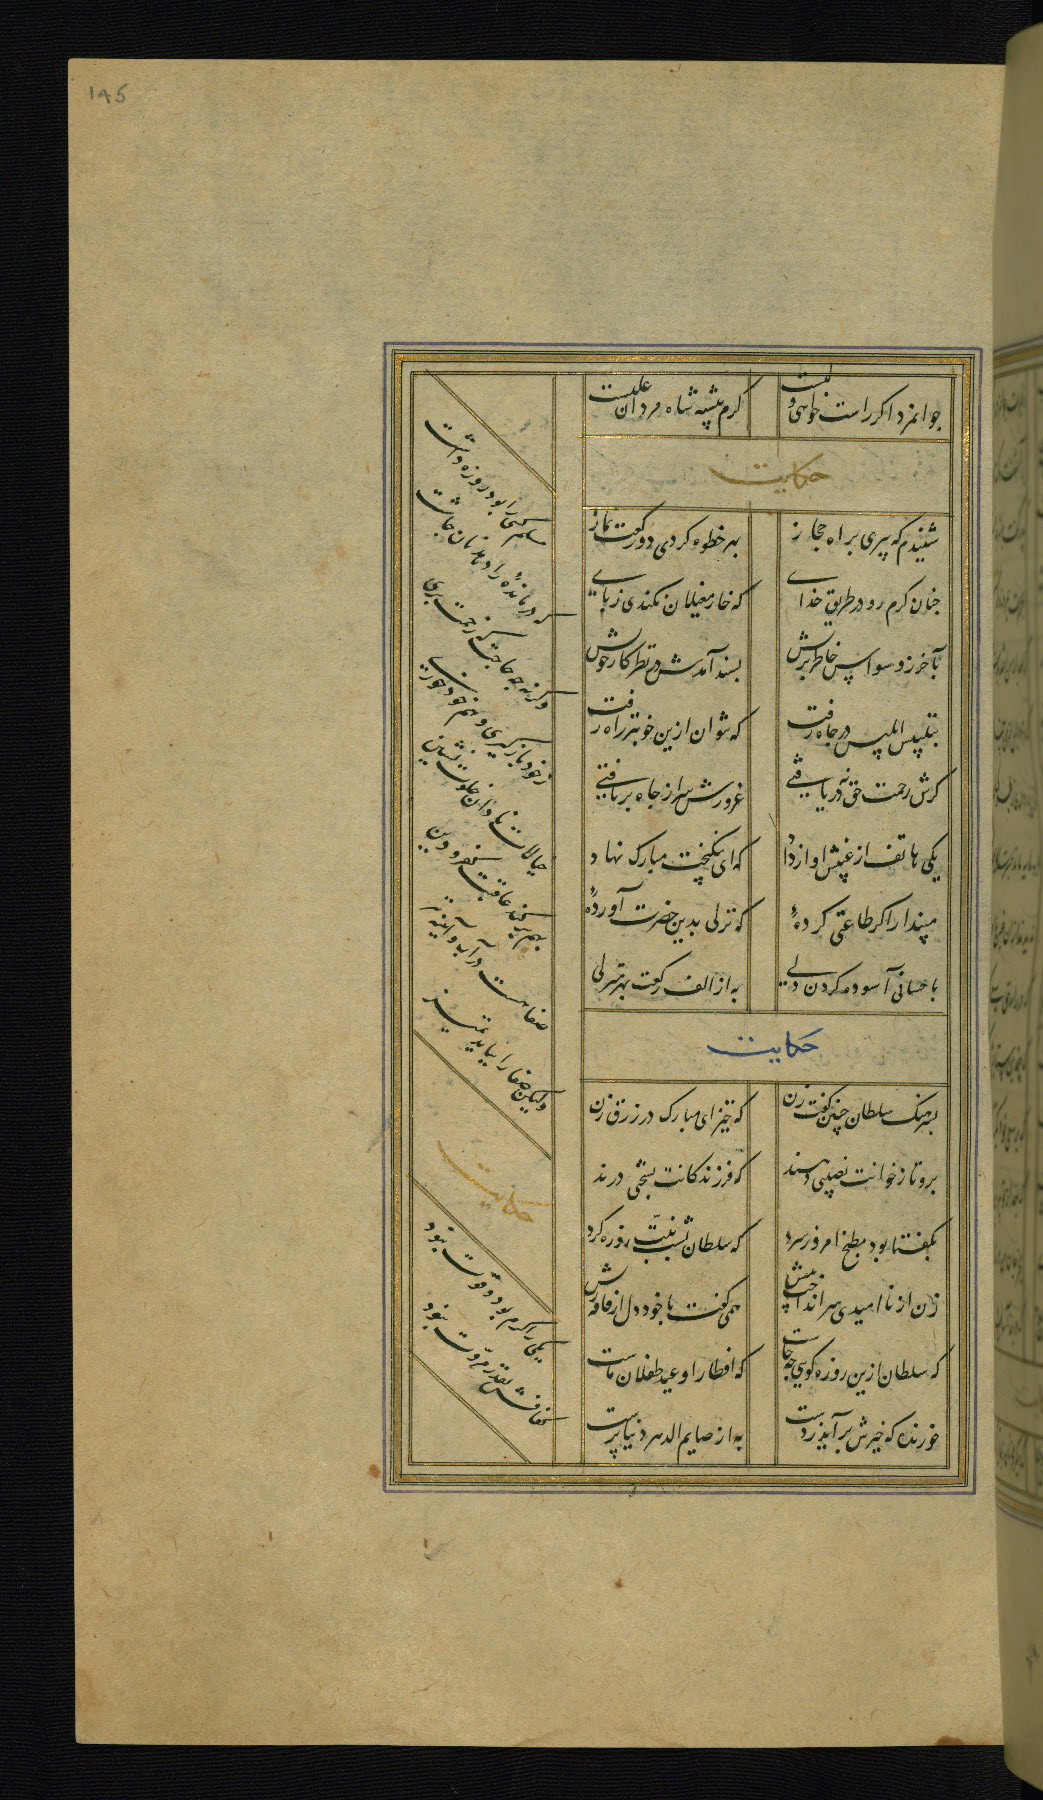 ۱۸۵
جوانمرد اکر راست خواهی ولیست
کرم پیشه شاه مردان علیست
حکایت
شنیدم که پیری براه حجاز
بهر خطوه کردی دو رکعت نماز
چنان کرم رو در طریق خدای
که خار مغیلان نکندی ز پای
بآخر ز وسواس خاطر پریش
پسند آمدش در نظر کار خویش
بتلبیس ابلیس در چاه رفت
که نتوان ازین خوبتر راه رفت
کرش رحمت حق نه دریافتی
غرورش سر از جاه برتافتی
یکی هاتف از غیبش آواز داد
که ای نیکبخت مبارک نهاد
مپندار اکر طاعتی کرده
که نزلی بدین حضرت آورده
باحسانی آسوده کردن دلی
به از الف رکعت بهر منزلی
حکایت
بسرهنک سلطان چنین کفت زن
که خیز ای مبارک در رزق زن
برو تا ز خوانت نصیبی دهند
که فرزندکانت بسختی درند
بکفتا بود مطبخ امروز سرد
که سلطان بشب نیت روزه کرد
زن از ناامیدی سر انداخت پیش
همی کفت با خود دل از فاقه ریش
که سلطان ازین روزه کویی چه خواست
که افطار او عید طفلان ماست
خورنده که خیرش برآید ز دست
به از صایم الدهر دنیاپرست
مسلم کسی را بود روزه داشت
که درمانده را دهد نان چاشت
وکرنه چه حاجت که زحمت بری
ز خود بازکیری و هم خود خوری
خیالات نادان خلوت نشین
بهم برکند عاقبت کفر و دین
صفاییست در آب و آیینه نیز
ولیکن صفا را بباید تمیز
حکایت
یکی را کرم بود و قوت نبود
کفافش بقدر مروت نبود